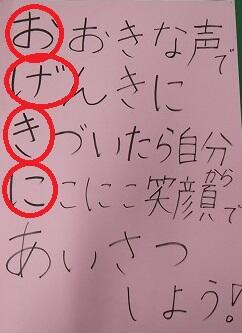 おおきな声で
げんきに
きづいたら自分から
にこにこ笑顔で
あいさつ
しよう!